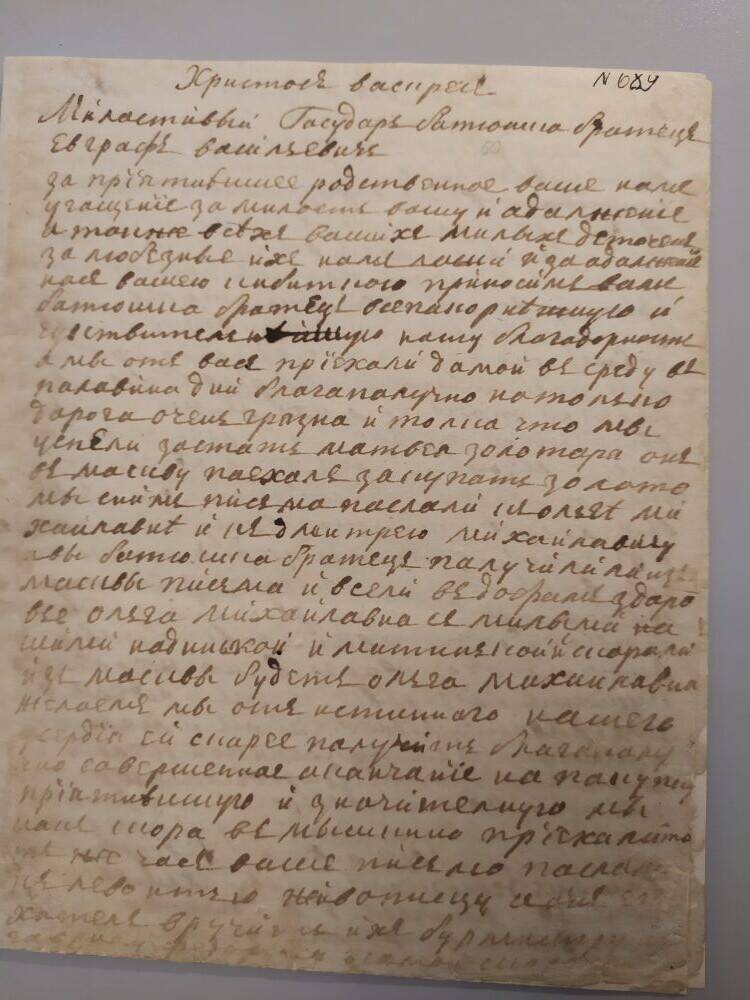 Христосъ васкресъ
N 689
Миластивый Государь батюшка братецъ
Евграфъ васильевичь
за пріятнѣвшее родственное ваше намъ
угащеніе за миласть вашу и адалженіе
и также всѣхъ вашихъ милыхъ деточекъ
за любезные ихъ намъ ласки и за адалжение
насъ вашею кибиткою приносимъ вамъ
батюшка братецъ всепакорнѣшую и
чувствительнѣшую нашу благадорность
а мы отъ васъ приехали дамой въ среду въ
палавина дни благапалучно но только
дарога очень грязна и толка что мы
успели застать матвея золотара онъ
въ маскву паехалъ закупать золото
мы снимъ писма паслали къ олгѣ ми
хаилавнѣ и къ дмитрею михаилавичу
авы батюшка братецъ палучили ли изъ
масквы писма и всели въ добрамъ здаро
вье олга михаилавна съ милыми на
шими надинькой и митинькой и скорали
изъ масквы будетъ олга михаилавна
желаемъ мы отъ истинного нашего
усердія ей скарее палучить благапалу
чно савершенное аканчаніе на пакупку
пріятнѣвшую и значителную мы
какъ скора въ мышкино приехали то
тъ же часъ ваше писмо паслали
къ левонтью живописцу и онъ ево
хателъ вручить ихъ бурмистру